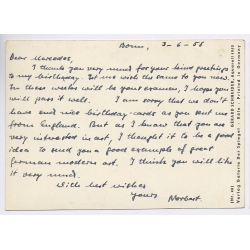 Bonn, 3-6-58
Dear Mercedes,
I thank you very much for your kind greetings
to my birthday. Let me wish the same to you now.
In three weeks will be your exams, I hope you
will pass it well. I am sorry that we don't
have such nice birthday-cards as you sent me
from England. But as I know that you are
very interested in art, I thought it to be a good
idea to send you a good example of great
german modern art. I think you will like
it very much.
With best wishes
yours
Norbert.
GERARD SCHNEIDER
Verlag Galerie Der Spiegel, Köln, Printed in Germany